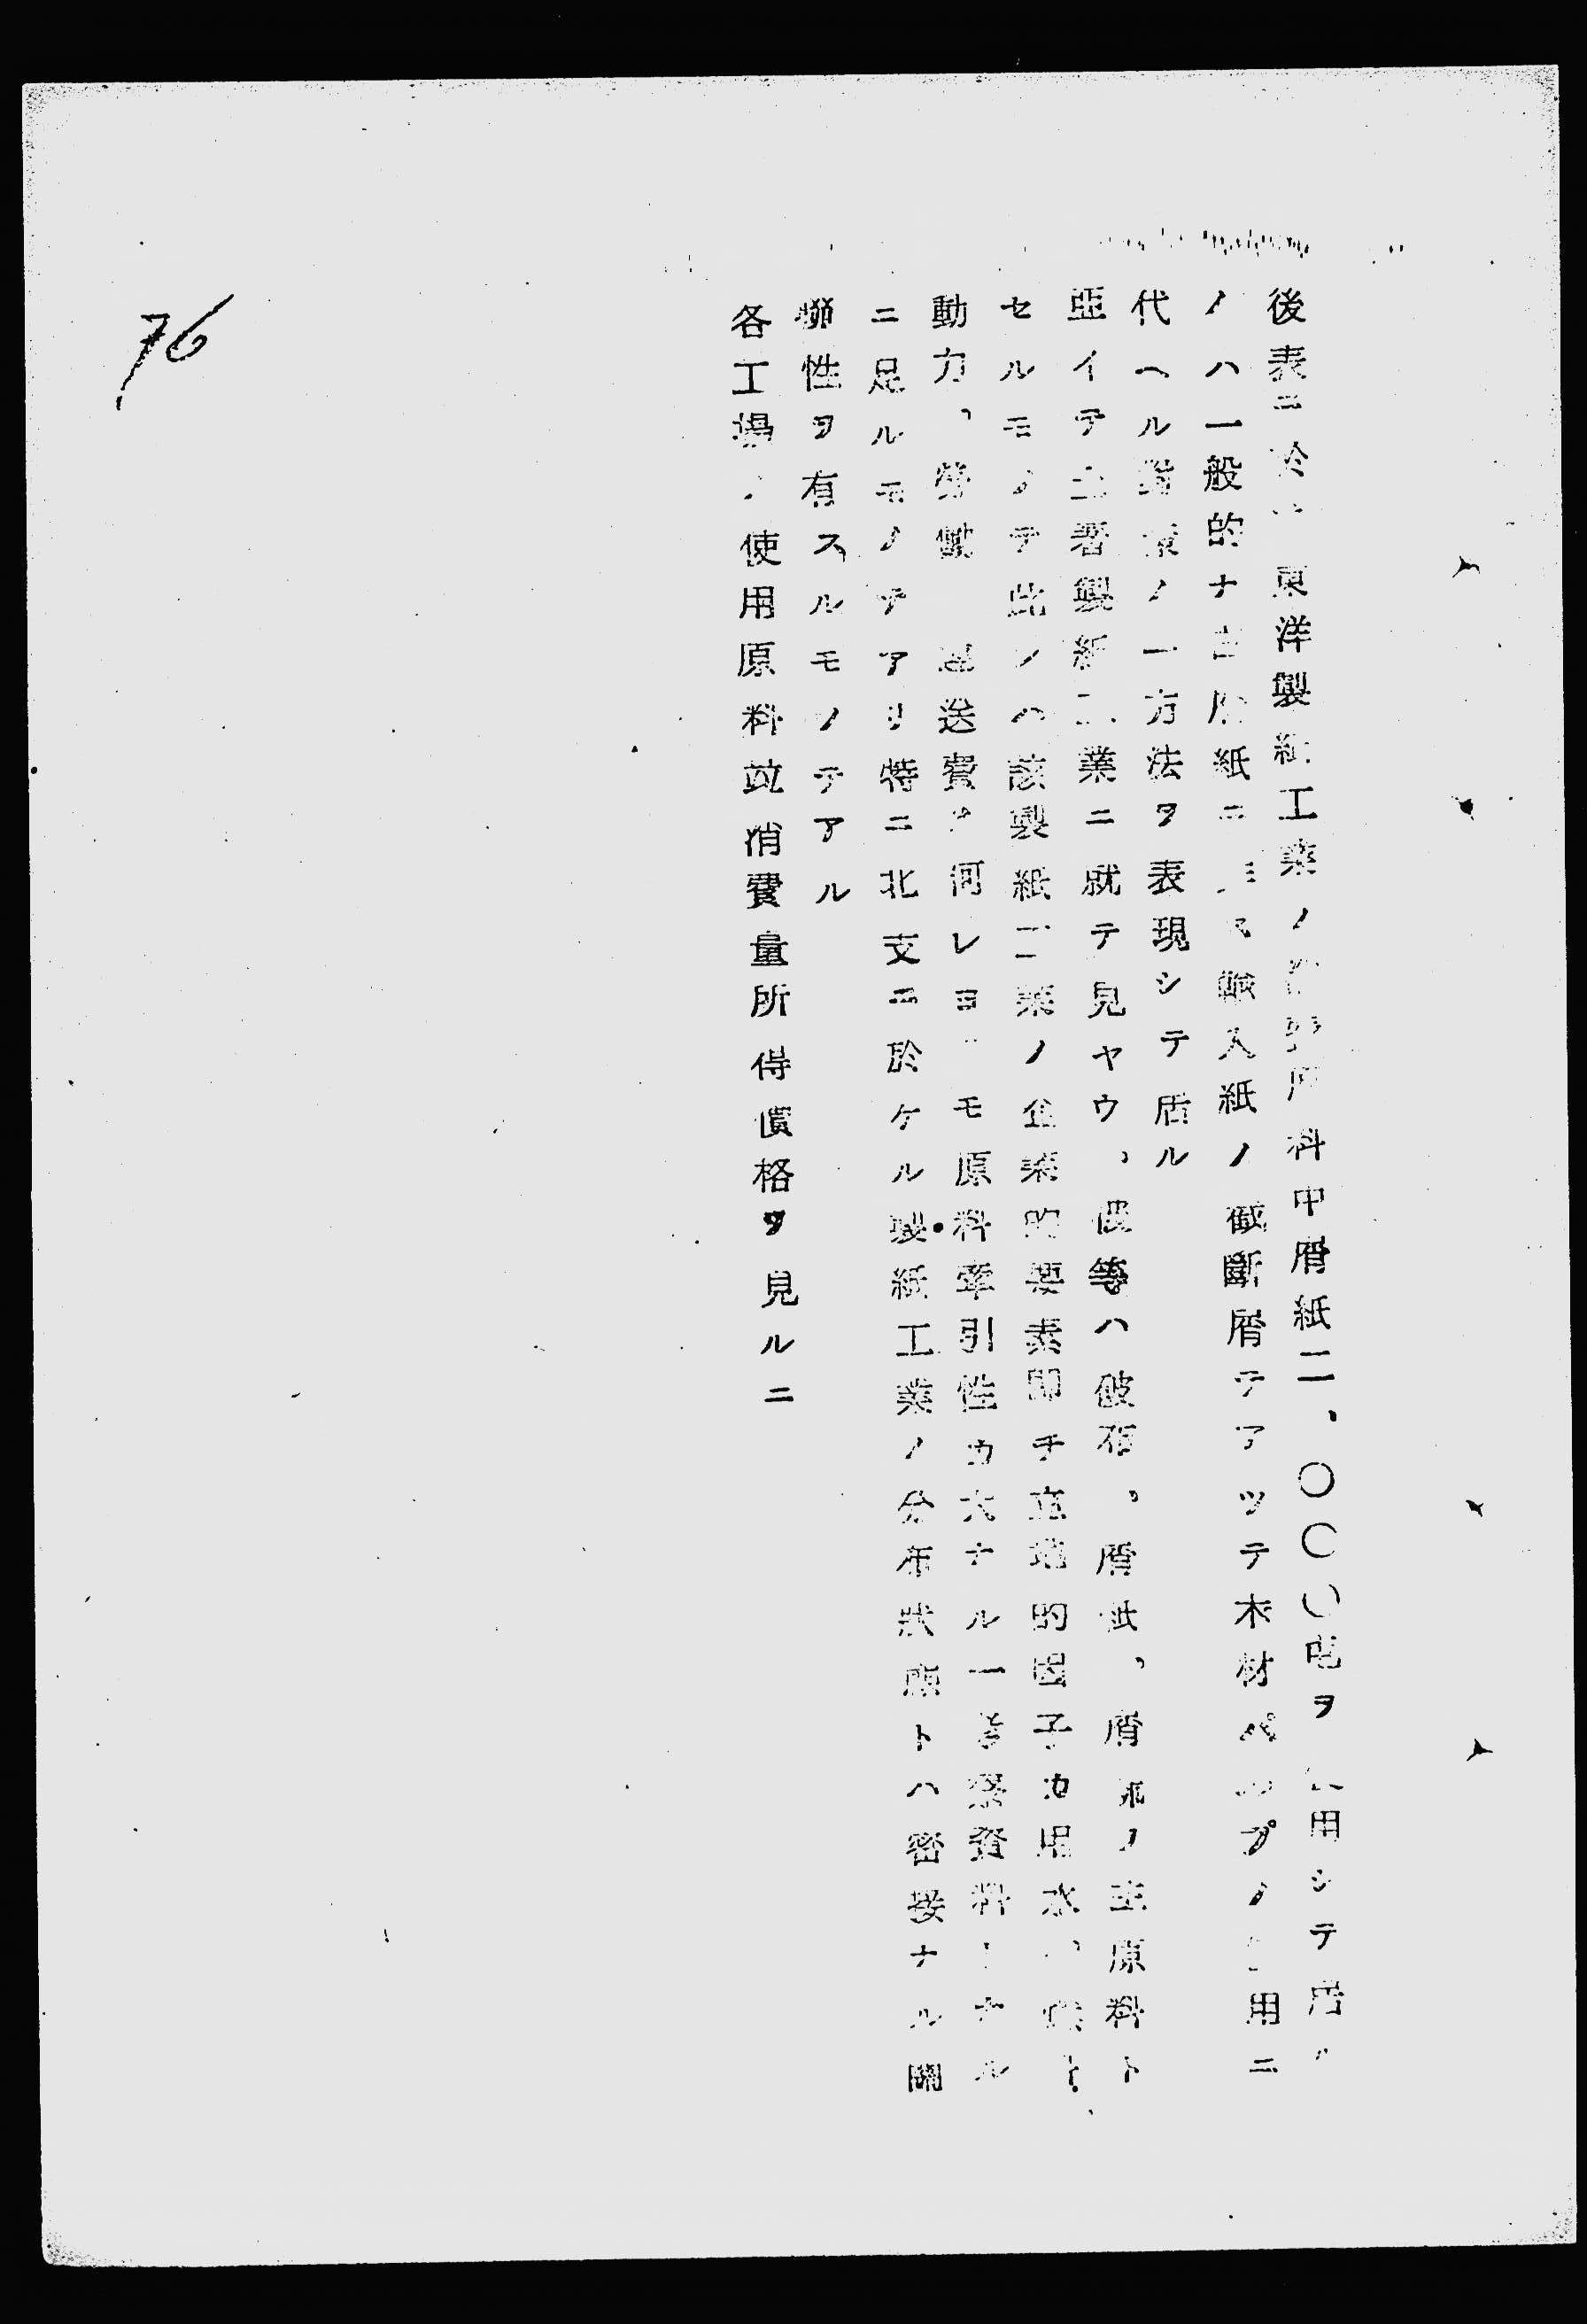 後表ニ於テ東洋製紙工業ノ所要原料中屑紙二、〇〇〇屯ヲ使用シテ居ル
ノハ一般的ナ古屑紙ニ非ズ輸入紙ノ截斷屑テアツテ木材パルプノ使用ニ
代ヘル對策ノ一方法ヲ表現シテ居ル
亞イテ土著製紙工業ニ就テ見ヤウ、彼等ハ破布、屑紙、屑麻ノ主原料ト
セルモノテ此レハ該製紙工業ノ企業的要素即チ立地的因子カ用水、燃料
動力、勞働 運送費等何レヨリモ原料牽引性カ大ナル一考察資料トナル
ニ足ルモノテアリ特ニ北支ニ於ケル製紙工業ノ分布狀態トハ密接ナル關
聯性ヲ有スルモノテアル
各工場ノ使用原料竝消費量所得價格ヲ見ルニ
76